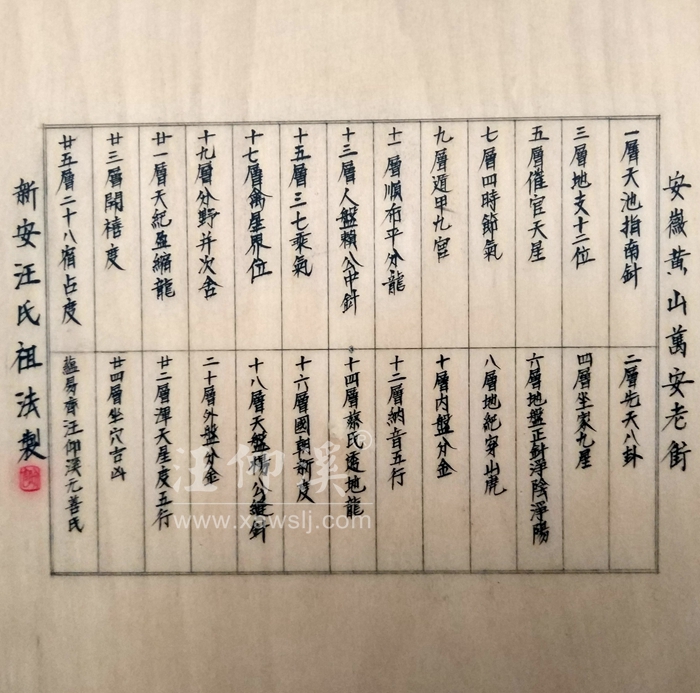 安徽黃山萬安老街
一層天池指南針
二層先天八卦
三層地支十二位
四層坐家九星
五層催官天星
六層地盤正針淨陰淨陽
七層四時節氣
八層地紀穿山虎
九層遁甲九宮
十層內盤分金
十一層順布平分龍
十二層納音五行
十三層人盤賴公中針
十四層蔡氏透地龍
十五層三七乘氣
十六層國朝新度
十七層禽星界位
十八層天盤楊公縫針
十九層分野并次舍
二十層外盤分金
廿一層天紀盈縮龍
廿二層渾天星度五行
廿三層開禧度
廿四層坐穴吉凶
廿五層二十八宿占度
蘊易齊汪仰溪元善氏
新安汪氏祖法製
汪仰奚®
www.xawslj.com